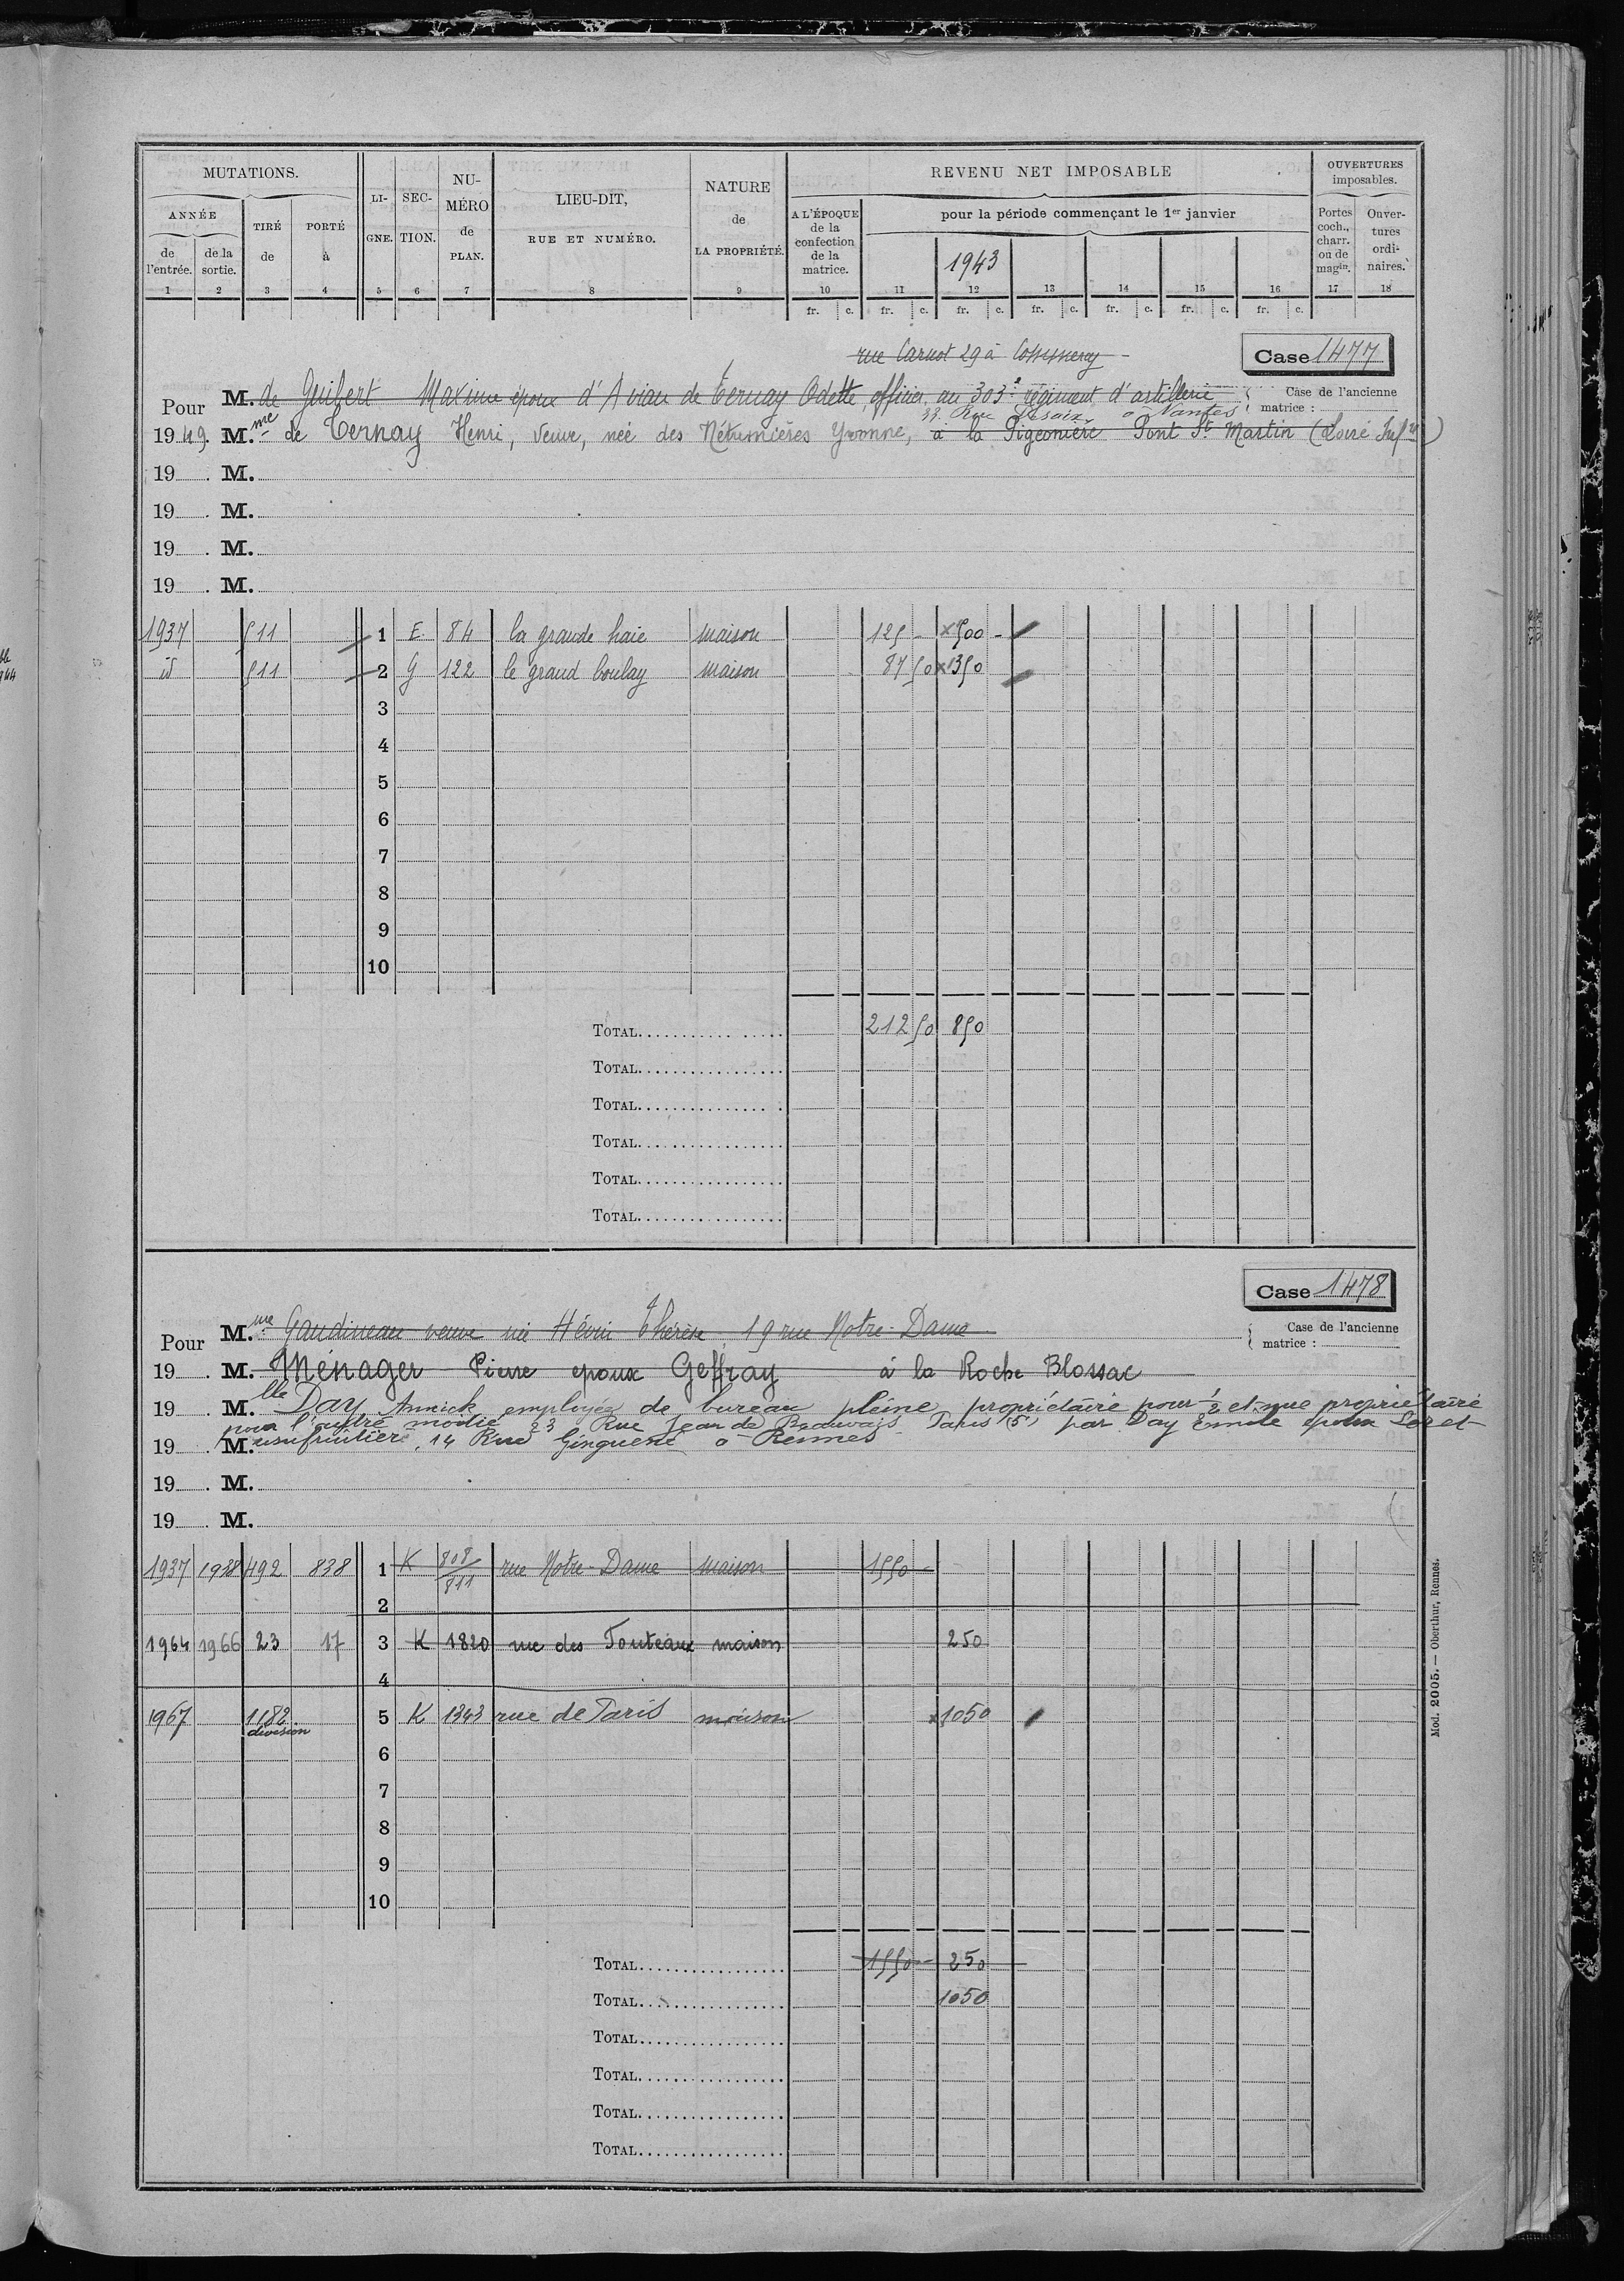 MUTATIONS. LI-GNE. SEC-TION. NU-MÉRO de PLAN. LIEU-DIT, RUE ET NUMÉRO. NATURE de LA PROPRIÉTÉ. REVENU NET IMPOSABLE OUVERTURES imposables.
ANNÉE TIRÉ de PORTÉ à A L'ÉPOQUE de la confection de la matrice. pour la période commençant le 1er janvier Portes coch., charr. ou de magin. Ouver-tures ordi-naires.
de l'entrée. de la sortie. 1943
1 2 3 4 5 6 7 8 9 10 11 12 13 14 15 16 17 18
fr. c. fr. c. fr. c. fr. c. fr. c. fr. c. fr. c.
rue Carnot 29 à
Case 1477
Pour M. de Guibert Maxime époux d'Avian de Ternay Odette, officier au 303e régiment d'artillerie Case de l'ancienne matrice :
33 Rue Desaix à Nantes
1949. Mme de Ternay Henri, veuve, née des Nétumières Yvonne, à la Pigeonière Pont St Martin (Loire Infre)
19 . M.
19 . M.
19 . M.
19 . M.
1937 511 1 E. 84 la grande haie maison 125 - x500 -
id 511 2 G 122 le grand boulay maison 87 50 x350
3
4
5
6
7
8
9
10
TOTAL 212 50 850
TOTAL
TOTAL
TOTAL
TOTAL
TOTAL
Case 1478
Pour Mme Gaudineau veuve née Hévin Thérèse, 19 rue Notre-Dame Case de l'ancienne matrice :
19 . M. Ménager Pierre époux Geffray à la Roche Blossac
19 . Mlle Day Annick employée de bureau pleine propriétaire pour 1/2 et nue propriétaire
pour l'autre moitié 23 Rue Jean de Beauvais Paris (5) par Day Emile époux Leret
19 . M. usufruitière, 14 Rue Ginguené à Rennes
19 . M.
19 . M.
1937 1938 492 838 1 K 808/811 rue Notre-Dame maison 1550 -
2
1964 1966 23 17 3 K 1820 rue des Touteaux maison 250
4
1967 1182 division 5 K 1343 rue de Paris maison x1050
6
7
8
9
10
TOTAL 1550 - 250
TOTAL 1050
TOTAL
TOTAL
TOTAL
TOTAL
Mod. 2005. — Oberthur, Rennes.